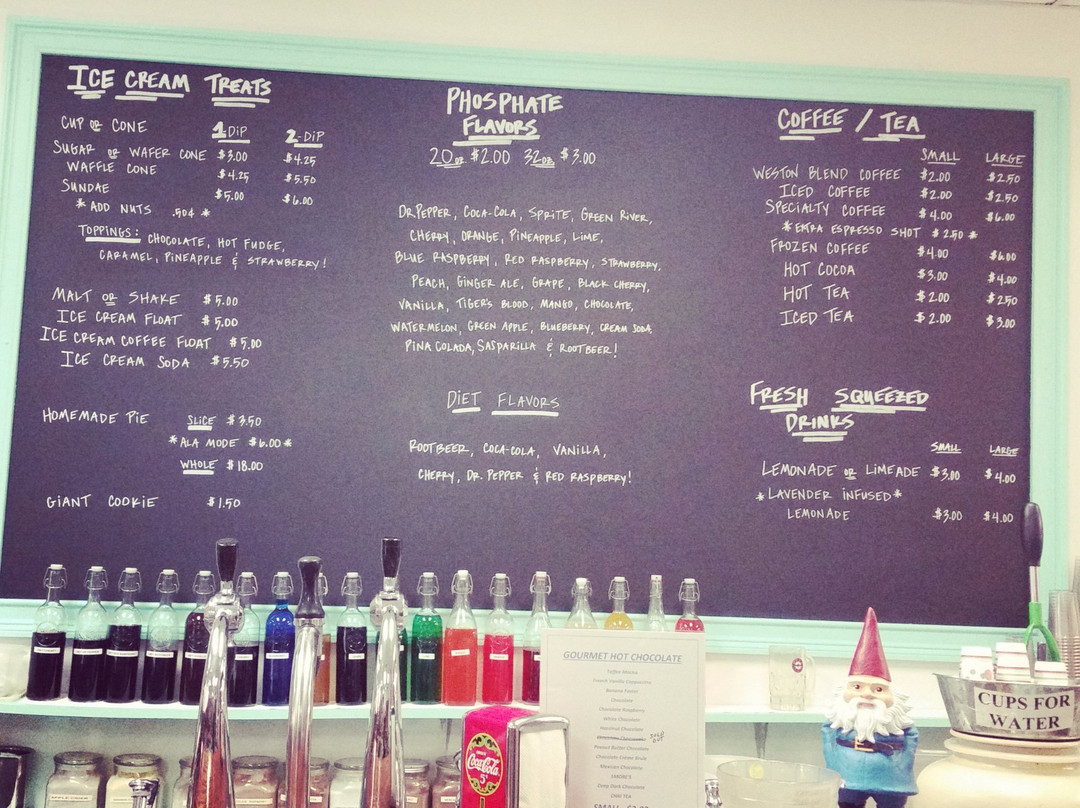 ICE CREAM TREATS
CUP OR CONE 1 DIP 2-DIP
SUGAR OR WAFER CONE $3.00 $4.25
WAFFLE CONE $4.25 $5.50
SUNDAE $5.00 $6.00
*ADD NUTS .50¢*
TOPPINGS: CHOCOLATE, HOT FUDGE,
CARAMEL, PINEAPPLE & STRAWBERRY!
MALT OR SHAKE $5.00
ICE CREAM FLOAT $5.00
ICE CREAM COFFEE FLOAT $5.00
ICE CREAM SODA $5.50
HOMEMADE PIE SLICE $3.50
*ALA MODE $6.00*
WHOLE $18.00
GIANT COOKIE $1.50
PHOSPHATE
FLAVORS
20oz $2.00 32oz $3.00
DR.PEPPER, COCA-COLA, SPRITE, GREEN RIVER,
CHERRY, ORANGE, PINEAPPLE, LIME,
BLUE RASPBERRY, RED RASPBERRY, STRAWBERRY,
PEACH, GINGER ALE, GRAPE, BLACK CHERRY,
VANILLA, TIGER'S BLOOD, MANGO, CHOCOLATE,
WATERMELON, GREEN APPLE, BLUEBERRY, CREAM SODA,
PINA COLADA, SASPARILLA & ROOTBEER!
DIET FLAVORS
ROOTBEER, COCA-COLA, VANILLA,
CHERRY, DR. PEPPER & RED RASPBERRY!
COFFEE / TEA
SMALL LARGE
WESTON BLEND COFFEE $2.00 $2.50
ICED COFFEE $2.00 $2.50
SPECIALTY COFFEE $4.00 $6.00
*EXTRA ESPRESSO SHOT $2.50*
FROZEN COFFEE $4.00 $6.00
HOT COCOA $3.00 $4.00
HOT TEA $2.00 $2.50
ICED TEA $2.00 $3.00
FRESH SQUEEZED
DRINKS
SMALL LARGE
LEMONADE OR LIMEADE $3.00 $4.00
*LAVENDER INFUSED*
LEMONADE $3.00 $4.00
GOURMET HOT CHOCOLATE
Toffee Mocha
French Vanilla Cappuccino
Banana Foster
Chocolate
Chocolate Raspberry
White Chocolate
Hazelnut Chocolate
SOLD OUT
Peanut Butter Chocolate
Chocolate Crème Brule
Mexican Chocolate
SMORE'S
Deep Dark Chocolate
CHAI TEA
Coca-Cola
5¢
CUPS FOR
WATER